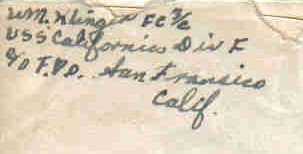 Wm. Klinger FC 3/c
USS California Div F
c/o F.P.O. San Fransico
Calif.